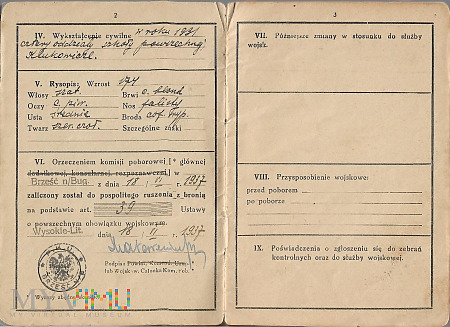 2
IV. Wykształcenie cywilne w roku 1931
cztery oddziały szkoły powszechnej
Klukowicze
V. Rysopis: Wzrost 174
Włosy szat. Brwi c. blond
Oczy c. piw. Nos falisty
Usta średnie Broda cof. wyp.
Twarz Szczególne znaki
VI. Orzeczeniem komisji poborowej [* głównej
dodatkowej, konsularnej, rozpoznawczej]
Brześć n/Bug. z dnia 18 VI r. 1937
zaliczony został do pospolitego ruszenia z bronią
na podstawie art. 39 Ustawy
o powszechnym obowiązku wojskowym
Wysokie-Lit. dnia 18 VI r. 1937
Podpis
lub Wojskow. Członka Kom. rob. *
3
VII. Późniejsze zmiany w stosunku do służby
wojsk.
VIII. Przysposobienie wojskowe:
przed poborem
po poborze
IX. Poświadczenia o zgłoszeniu się do zebrań
kontrolnych oraz do służby wojskowej.